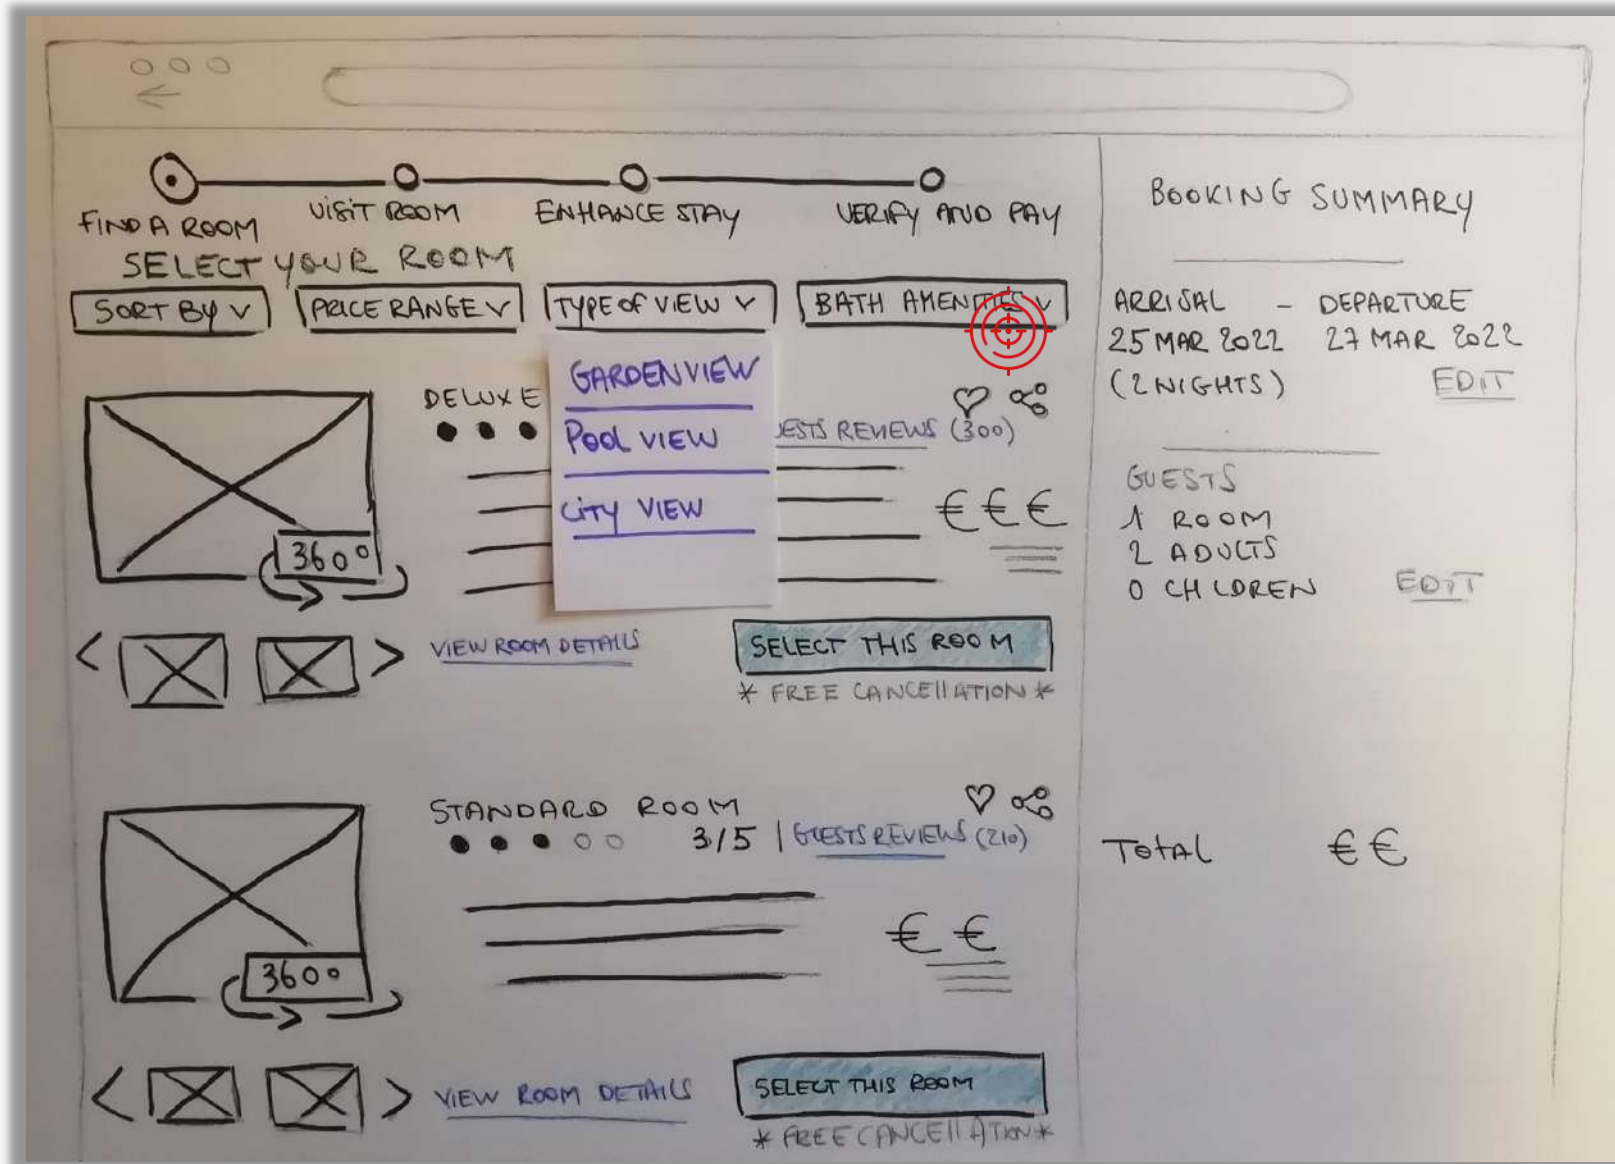 FIND A ROOM
VISIT ROOM
ENHANCE STAY
VERIFY AND PAY
SELECT YOUR ROOM
SORT BY
PRICE RANGE
TYPE OF VIEW
BATH AMENITIES
GARDEN VIEW
POOL VIEW
CITY VIEW
DELUXE
ESTS REVIEWS (300)
€€€
360°
VIEW ROOM DETAILS
SELECT THIS ROOM
* FREE CANCELLATION *
STANDARD ROOM
3/5 | GUESTS REVIEWS (210)
€ €
360°
VIEW ROOM DETAILS
SELECT THIS ROOM
* FREE CANCELLATION *
BOOKING SUMMARY
ARRIVAL - DEPARTURE
25 MAR 2022 27 MAR 2022
(2 NIGHTS) EDIT
GUESTS
1 ROOM
2 ADULTS
0 CHLDREN EDIT
TOTAL €€